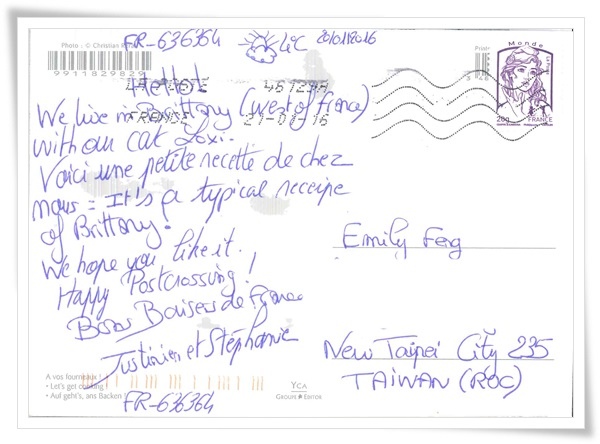 Photo - © Christian
9911829829
FR-636364
4°C 20/01/2016
Priori
Monde
20g
FRANCE
LA POSTE
46129A
FRANCE
21-01-16
Hello!
We live in Brittany (west of France)
with our cat Loxi.
Voici une petite recette de chez
nous = It's a typical receipe
of Brittany.
We hope you like it.
Happy Postcrossing!
Bons Baisers de France
Justinien et Stéphanie
Emily Feng
New Taipei City 235
TAIWAN (ROC)
A vos fourneaux !
• Let's get cooking !
• Auf geht's, ans Backen
YCA
GROUPE EDITOR
FR-636364